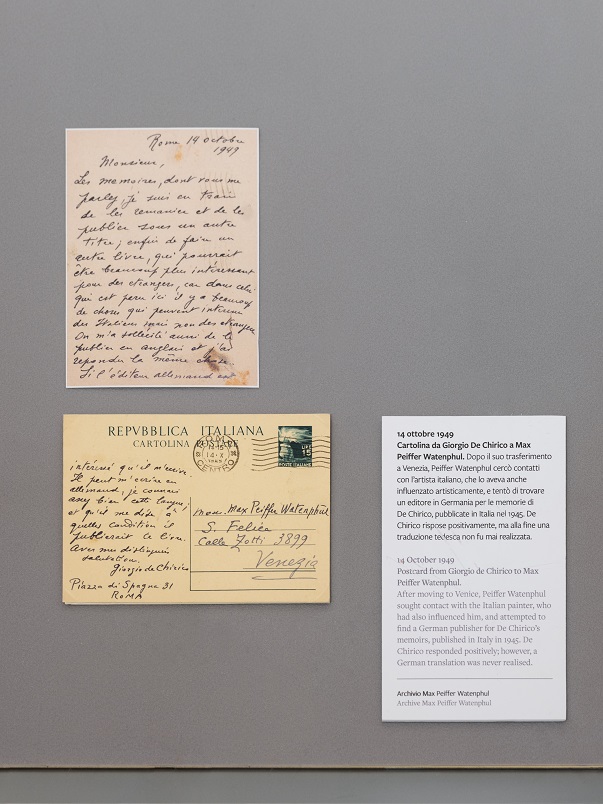 Rome 14 octobre
1949
Monsieur,
Les memoires, dont vous me
parlez, je suis en train
de les remanier et de les
publier sous un autre
titre; enfin de faire un
autre livre, qui pourrait
être beaucoup plus intéressant
pour des etrangers, car dans celui
qui est paru ici il y a beaucoup
de choses qui peuvent interesser
des Italiens mais non des etrangers
On m'a sollecité aussi de le
publier en anglais et j'ai
repondu la même chose.
Si l'éditeur allemand est
REPVBBLICA ITALIANA
CARTOLINA POSTALE
ROMA
14·X
1949
CENTRO
LIRE 15
POSTE ITALIANE
intéressé qu'il m'ecrive.
Il peut m'ecrire en
allemand, je connais
assez bien cette langue,
et qu'il me dise à
quelles condition il
publierait le livre.
Avec mes distinguées
salutations.
Giorgio de Chirico
Piazza di Spagna 31
ROMA
Max Peiffer Watenphul
S. Felice
Calle Zotti 3899
Venezia
14 ottobre 1949
Cartolina da Giorgio De Chirico a Max
Peiffer Watenphul. Dopo il suo trasferimento
a Venezia, Peiffer Watenphul cercò contatti
con l'artista italiano, che lo aveva anche
influenzato artisticamente, e tentò di trovare
un editore in Germania per le memorie di
De Chirico, pubblicate in Italia nel 1945. De
Chirico rispose positivamente, ma alla fine una
traduzione tedesca non fu mai realizzata.
14 October 1949
Postcard from Giorgio de Chirico to Max
Peiffer Watenphul.
After moving to Venice, Peiffer Watenphul
sought contact with the Italian painter, who
had also influenced him, and attempted to
find a German publisher for De Chirico's
memoirs, published in Italy in 1945. De
Chirico responded positively; however, a
German translation was never realised.
Archivio Max Peiffer Watenphul
Archive Max Peiffer Watenphul